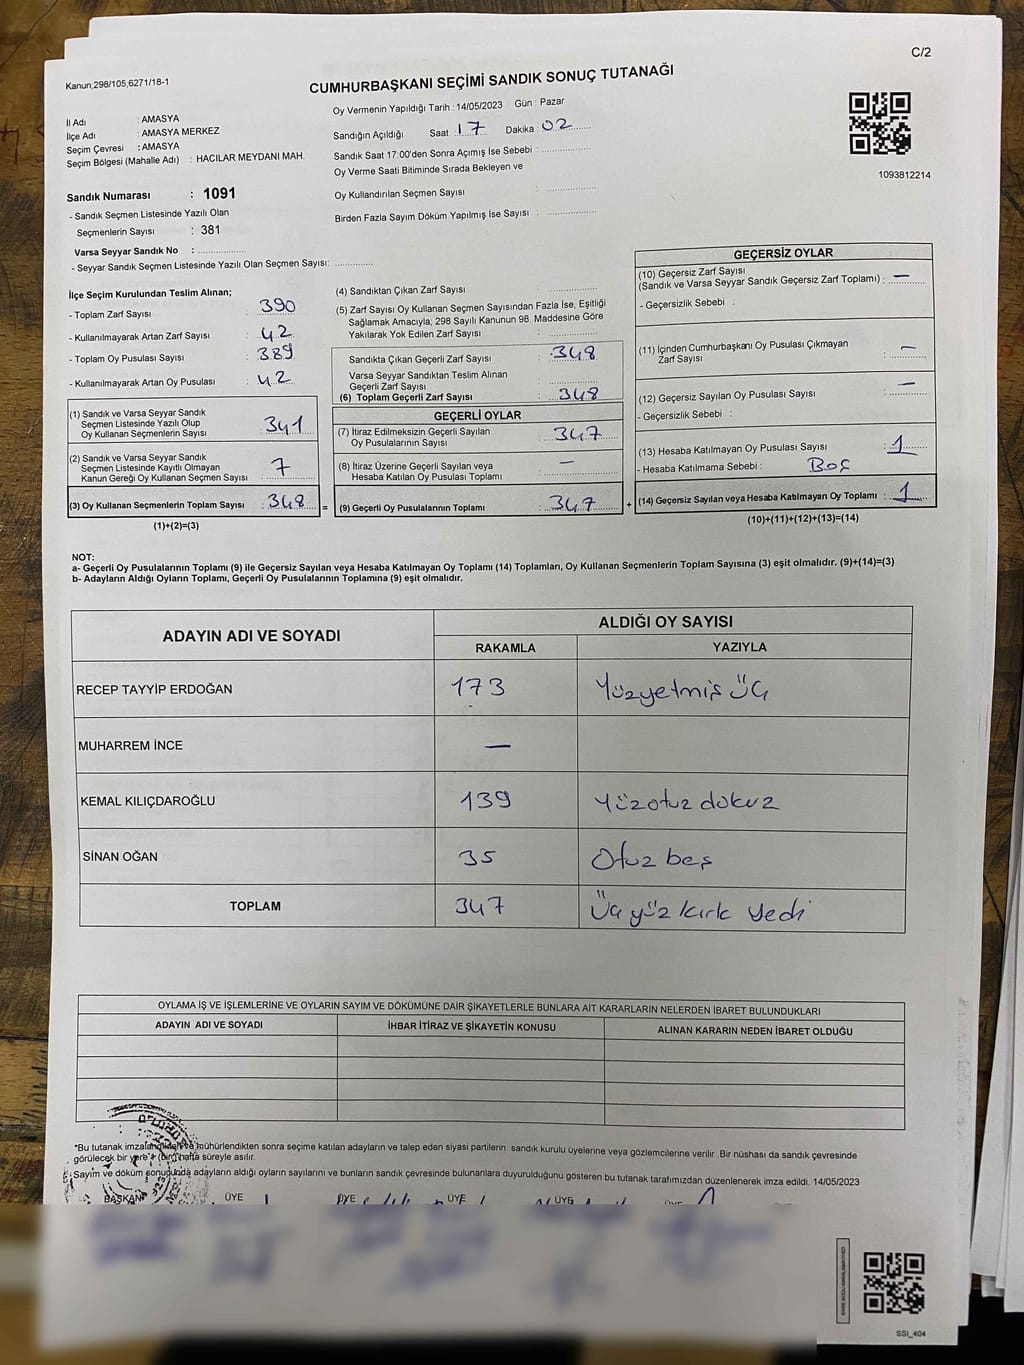 C/2
Kanun,298/105,6271/18-1
CUMHURBAŞKANI SEÇİMİ SANDIK SONUÇ TUTANAĞI
İl Adı : AMASYA
İlçe Adı : AMASYA MERKEZ
Seçim Çevresi : AMASYA
Seçim Bölgesi (Mahalle Adı) : HACILAR MEYDANI MAH.
Oy Vermenin Yapıldığı Tarih : 14/05/2023 Gün : Pazar
Sandığın Açıldığı Saat : 17 Dakika : 02
Sandık Saat 17:00'den Sonra Açımış İse Sebebi :
Oy Verme Saati Bitiminde Sırada Bekleyen ve
Oy Kullandırılan Seçmen Sayısı :
Birden Fazla Sayım Döküm Yapılmış İse Sayısı :
1093812214
Sandık Numarası : 1091
- Sandık Seçmen Listesinde Yazılı Olan
Seçmenlerin Sayısı : 381
Varsa Seyyar Sandık No :
- Seyyar Sandık Seçmen Listesinde Yazılı Olan Seçmen Sayısı:
İlçe Seçim Kurulundan Teslim Alınan;
- Toplam Zarf Sayısı : 390
- Kullanılmayarak Artan Zarf Sayısı : 42
- Toplam Oy Pusulası Sayısı : 389
- Kullanılmayarak Artan Oy Pusulası : 42
(1) Sandık ve Varsa Seyyar Sandık
Seçmen Listesinde Yazılı Olup
Oy Kullanan Seçmenlerin Sayısı : 341
(2) Sandık ve Varsa Seyyar Sandık
Seçmen Listesinde Kayıtlı Olmayan
Kanun Gereği Oy Kullanan Seçmen Sayısı : 7
(3) Oy Kullanan Seçmenlerin Toplam Sayısı : 348 =
(1)+(2)=(3)
(4) Sandıktan Çıkan Zarf Sayısı :
(5) Zarf Sayısı Oy Kullanan Seçmen Sayısından Fazla İse, Eşitliği
Sağlamak Amacıyla; 298 Sayılı Kanunun 98. Maddesine Göre
Yakılarak Yok Edilen Zarf Sayısı :
Sandıkta Çıkan Geçerli Zarf Sayısı : 348
Varsa Seyyar Sandıktan Teslim Alınan
Geçerli Zarf Sayısı :
(6) Toplam Geçerli Zarf Sayısı : 348
GEÇERLİ OYLAR
(7) İtiraz Edilmeksizin Geçerli Sayılan
Oy Pusulalarının Sayısı : 347
(8) İtiraz Üzerine Geçerli Sayılan veya
Hesaba Katılan Oy Pusulası Toplamı : —
(9) Geçerli Oy Pusulalarının Toplamı : 347 +
GEÇERSİZ OYLAR
(10) Geçersiz Zarf Sayısı
(Sandık ve Varsa Seyyar Sandık Geçersiz Zarf Toplamı) : —
- Geçersizlik Sebebi :
(11) İçinden Cumhurbaşkanı Oy Pusulası Çıkmayan
Zarf Sayısı : —
(12) Geçersiz Sayılan Oy Pusulası Sayısı : —
- Geçersizlik Sebebi :
(13) Hesaba Katılmayan Oy Pusulası Sayısı : 1
- Hesaba Katılmama Sebebi : Boş
(14) Geçersiz Sayılan veya Hesaba Katılmayan Oy Toplamı : 1
(10)+(11)+(12)+(13)=(14)
NOT:
a- Geçerli Oy Pusulalarının Toplamı (9) ile Geçersiz Sayılan veya Hesaba Katılmayan Oy Toplamı (14) Toplamları, Oy Kullanan Seçmenlerin Toplam Sayısına (3) eşit olmalıdır. (9)+(14)=(3)
b- Adayların Aldığı Oyların Toplamı, Geçerli Oy Pusulalarının Toplamına (9) eşit olmalıdır.
ADAYIN ADI VE SOYADI ALDIĞI OY SAYISI
RAKAMLA YAZIYLA
RECEP TAYYİP ERDOĞAN 173 Yüzyetmiş üç
MUHARREM İNCE —
KEMAL KILIÇDAROĞLU 139 Yüzotuz dokuz
SİNAN OĞAN 35 Otuz beş
TOPLAM 347 Üç yüz kırk yedi
OYLAMA İŞ VE İŞLEMLERİNE VE OYLARIN SAYIM VE DÖKÜMÜNE DAİR ŞİKAYETLERLE BUNLARA AİT KARARLARIN NELERDEN İBARET BULUNDUKLARI
ADAYIN ADI VE SOYADI İHBAR İTİRAZ VE ŞİKAYETİN KONUSU ALINAN KARARIN NEDEN İBARET OLDUĞU
*Bu tutanak imzalandıktan ve mühürlendikten sonra seçime katılan adayların ve talep eden siyasi partilerin sandık kurulu üyelerine veya gözlemcilerine verilir .Bir nüshası da sandık çevresinde
görülecek bir yere 1 (bir) hafta süreyle asılır.
Sayım ve döküm sonuçunda adayların aldığı oyların sayılarını ve bunların sandık çevresinde bulunanlara duyurulduğunu gösteren bu tutanak tarafımızdan düzenlenerek imza edildi. 14/05/2023
BAŞKAN ÜYE ÜYE ÜYE ÜYE ÜYE
SSI_404